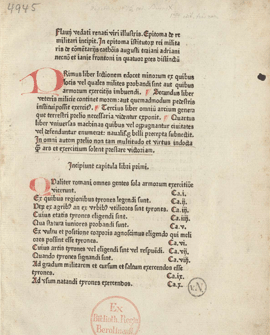 4945
Flauij vedati renati viri illustris. Epitoma de re
militari incipit. In epitoma institutoꝝ rei milita
ris de cōmētarijs cathōis augusti traiani adriani
necnō et ianie frontoni in quatuor ꝑtes distinctū
Primus liber lectionem edocet minorum ex quibus
locis vel quales milites probandi sint aut quibus
armorum exercitijs imbuendi. Secundus liber
veteris militie continet morem: aut quemadmodum pedestris
institui possit exercitus. Tercius liber omnia arcium genera
que terrestri prelio necessaria videntur exponit. Quartus
liber vniuersas machinas quibus vel oppugnantur ciuitates
vel defenduntur enumerat: naualis belli precepta subiecit.
In omni autem prelio non tam multitudo et virtus indocta
ꝙ̄ ars et exercitium solent prestare victoriam.
Incipiunt capitula libri primi.
Qualiter romani omnes gentes sola armorum exercitio
vicerunt. Ca.i.
Ex quibus regionibus tyrones legendi sunt. Ca.ij.
Vtrum ex agris an ex vrbibus vtiliores sint tyrones. Ca.iij.
Cuius etatis tyrones eligendi sunt. Ca.iiij.
Qua statura iuniores probandi sunt. Ca.v.
Ex vultu et positione corporis agnoscimus eligendo qui meli
ores possint esse tyrones. Ca.vi.
Cuius artis tyrones vel eligendi sint vel respuendi. Ca.vij.
Quando tyrones signandi sunt. Ca.viij.
Ad gradum militarem et cursum et saltum exercendos esse
tyrones. Ca.ix.
Ad vsum natandi tyrones exercendos. Ca.x.
Ex
Biblioth. Regia
Berolinensi